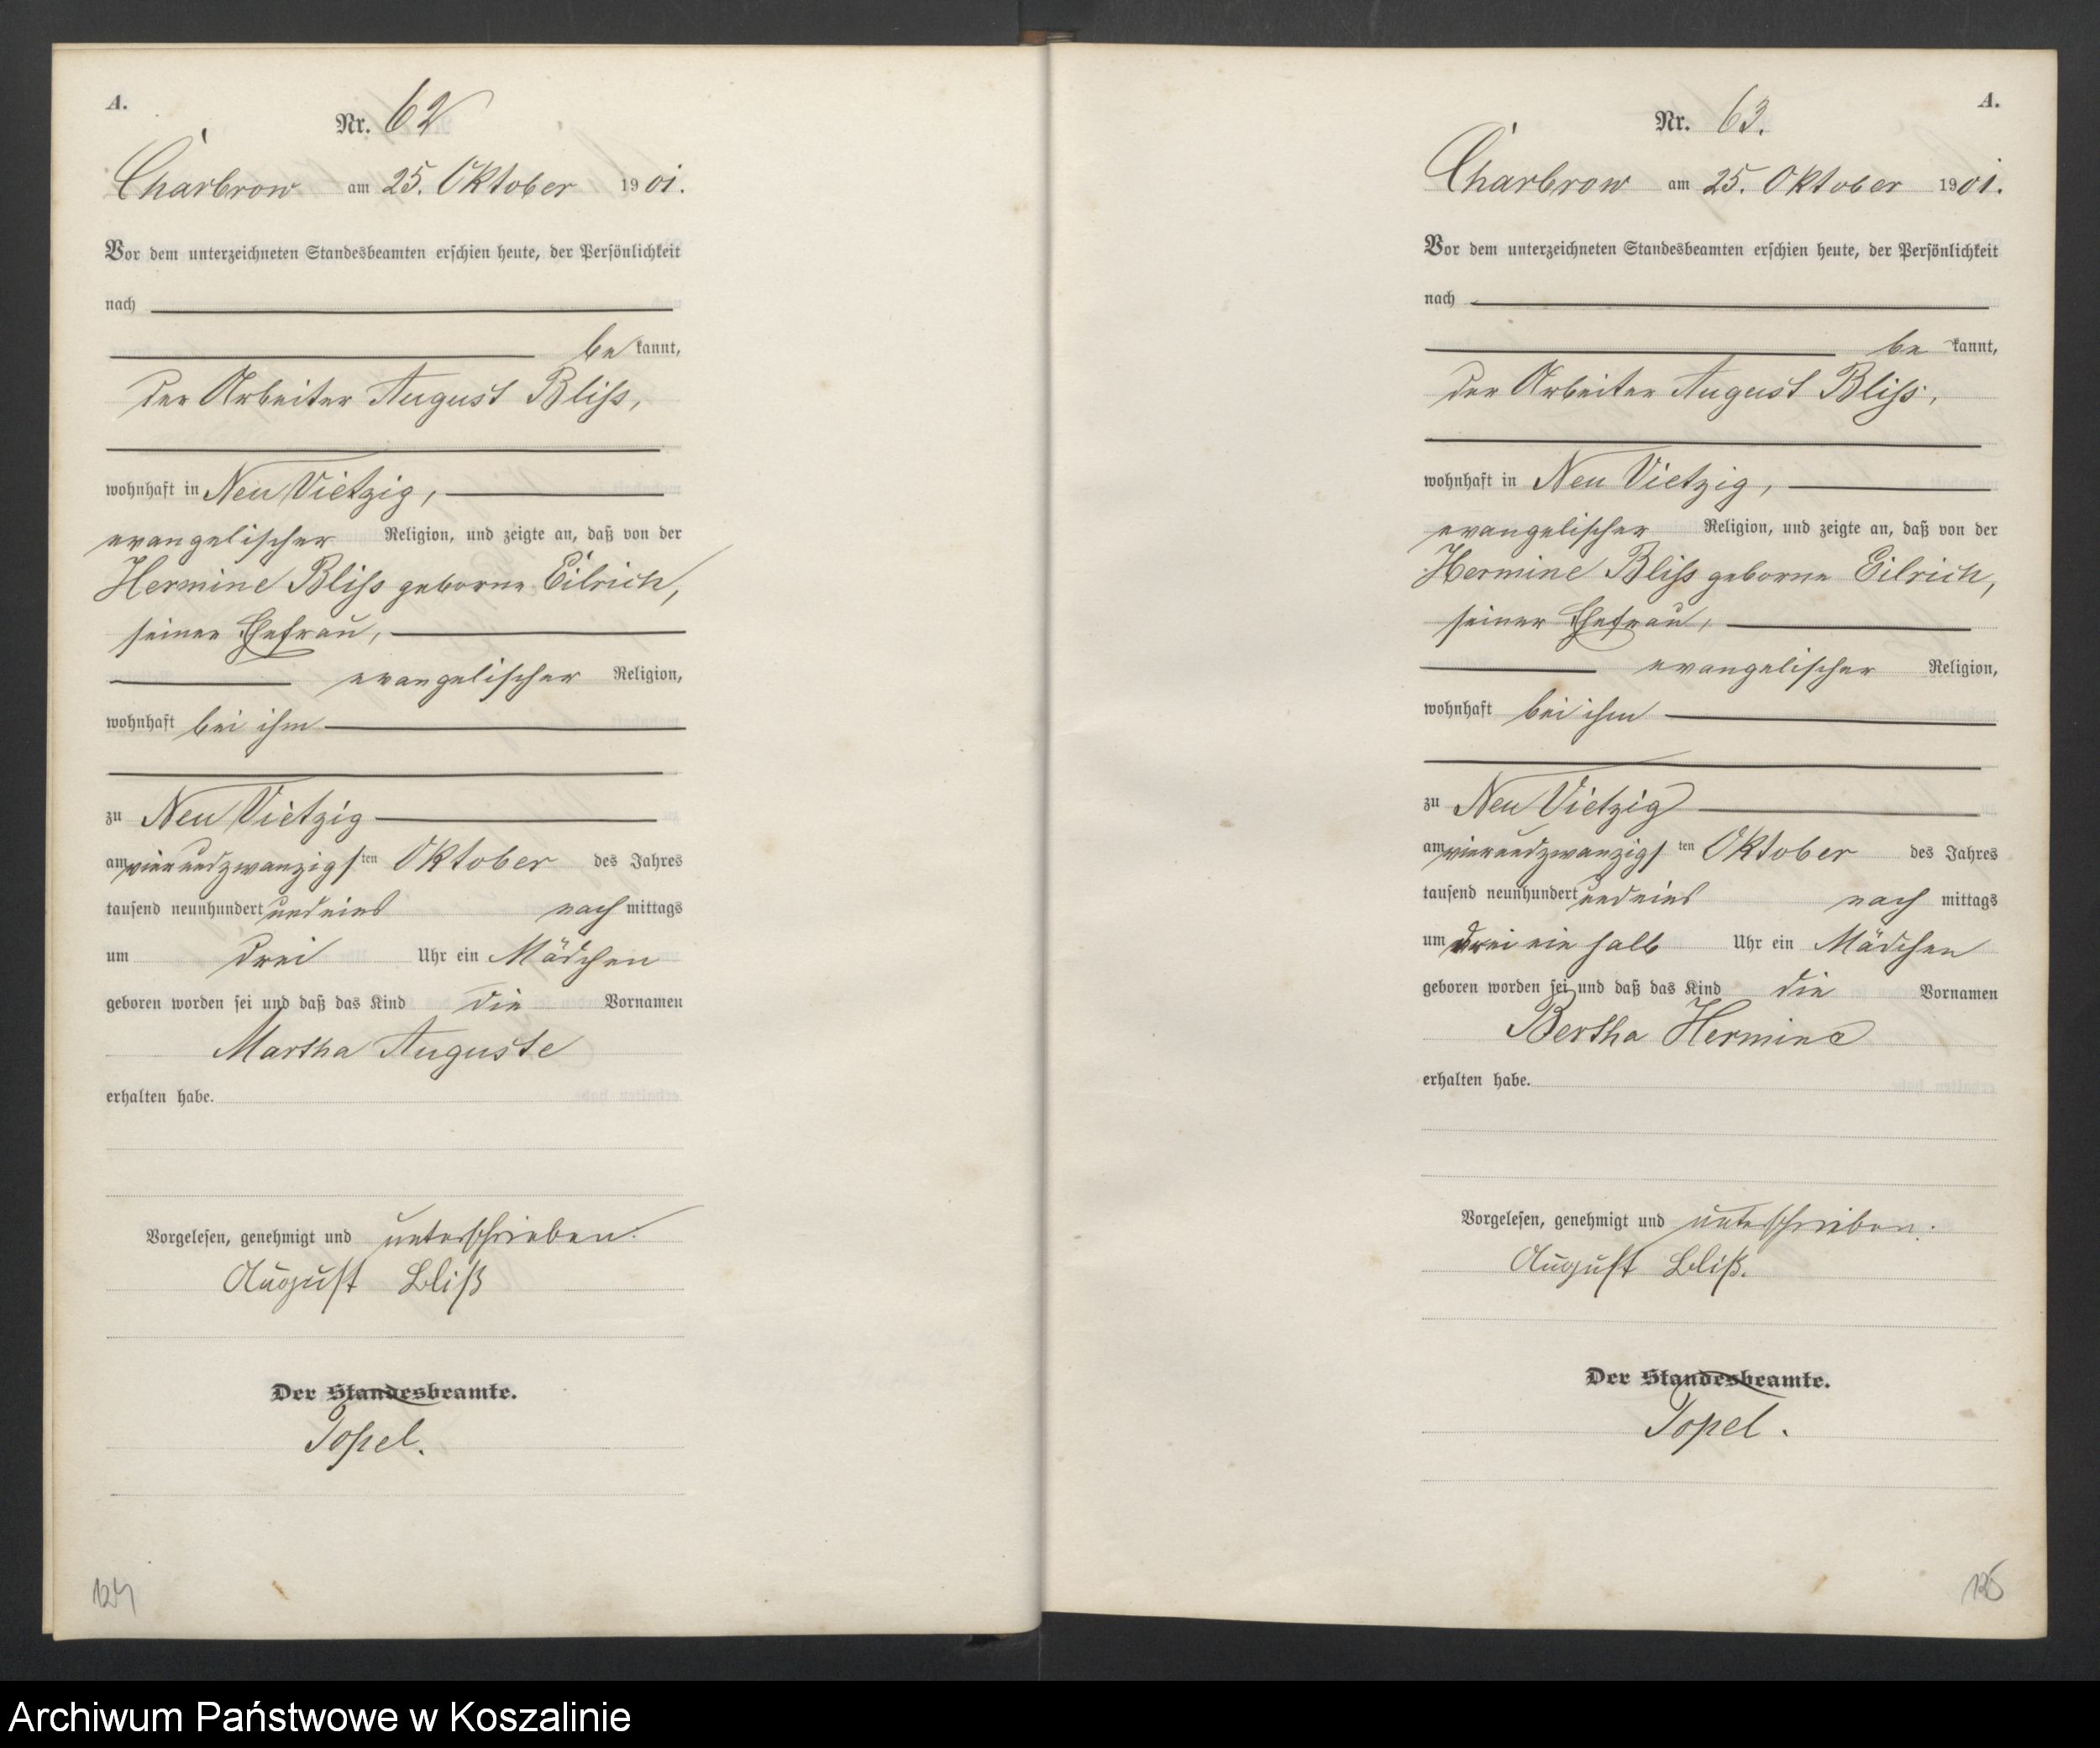 A.
Nr. 62
Charbrow am 25. Oktober 1901.
Vor dem unterzeichneten Standesbeamten erschien heute, der Persönlichkeit
nach
be kannt,
der Arbeiter August Bliss,
wohnhaft in Neu Vietzig,
evangelischer Religion, und zeigte an, daß von der
Hermine Bliss geborne Eilrich,
seiner Ehefrau,
evangelischer Religion,
wohnhaft bei ihm
zu Neu Vietzig
am vierundzwanzigsten Oktober des Jahres
tausend neunhundert und eins nach mittags
um drei Uhr ein Mädchen
geboren worden sei und daß das Kind die Vornamen
Martha Auguste
erhalten habe.
Vorgelesen, genehmigt und unterschrieben.
August Bliß
Der Standesbeamte.
Topel.
124
A.
Nr. 63.
Charbrow am 25. Oktober 1901.
Vor dem unterzeichneten Standesbeamten erschien heute, der Persönlichkeit
nach
be kannt,
der Arbeiter August Bliss,
wohnhaft in Neu Vietzig,
evangelischer Religion, und zeigte an, daß von der
Hermine Bliss geborne Eilrich,
seiner Ehefrau,
evangelischer Religion,
wohnhaft bei ihm
zu Neu Vietzig
am vierundzwanzigsten Oktober des Jahres
tausend neunhundert und eins nach mittags
um drei ein halb Uhr ein Mädchen
geboren worden sei und daß das Kind die Vornamen
Bertha Hermine
erhalten habe.
Vorgelesen, genehmigt und unterschrieben.
August Bliß.
Der Standesbeamte.
Topel.
125
Archiwum Państwowe w Koszalinie